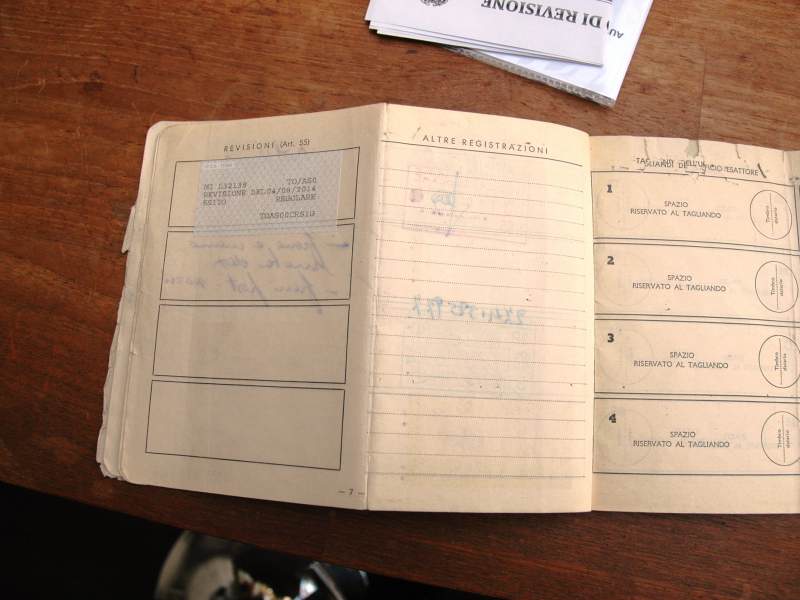 ) DI REVISIONE
AU
REVISIONI (Art. 55)
TO/AS0
REVISIONE DEL 04/09/2014
ESITO REGOLARE
— 7 —
ALTRE REGISTRAZIONI
TAGLIANDI DELL'UFFICIO ESATTORE
1
SPAZIO
RISERVATO AL TAGLIANDO
Timbro
datario
2
SPAZIO
RISERVATO AL TAGLIANDO
Timbro
datario
3
SPAZIO
RISERVATO AL TAGLIANDO
Timbro
datario
4
SPAZIO
RISERVATO AL TAGLIANDO
Timbro
datario